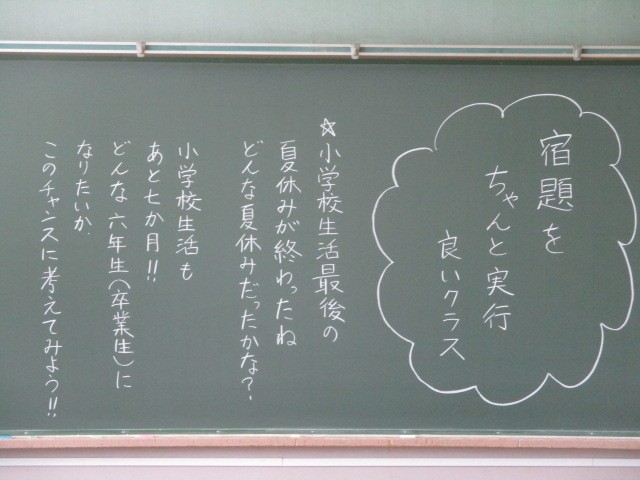 宿題を
ちゃんと実行
良いクラス
☆小学校生活最後の
夏休みが終わったね
どんな夏休みだったかな?
小学校生活も
あと七か月!!
どんな六年生(卒業生)に
なりたいか、
このチャンスに考えてみよう!!